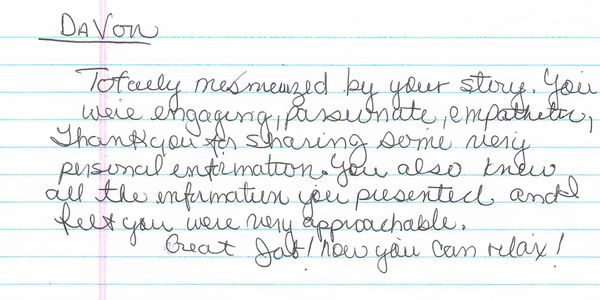 DaVon
Totally mesmerized by your story. You
were engaging, passionate, empathetic,
Thank you for sharing some very
personal information. You also knew
all the information you presented and I
felt you were very approachable.
Great Job! Now you can relax!